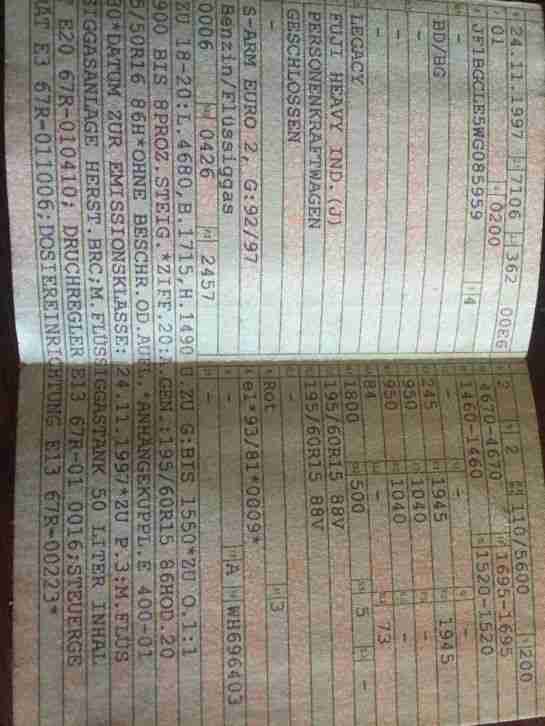 24.11.1997 7106 362 00E6
01 0200
JF1BGCLE5WG086959 4
-
BD/BG
-
-
LEGACY
FUJI HEAVY IND.(J)
PERSONENKRAFTWAGEN
GESCHLOSSEN
-
S-ARM EURO 2, G:92/97
Benzin/Flüssiggas
0006 0426 2457
2 2 110/5600 200
4670-4670 1695-1695
1460-1460 1520-1520
- -
- 1945 1945
245 1040 -
950 1040 -
950 - 73
84
1800 500 5 -
195/60R15 88V
195/60R15 88V
-
-
Rot 3
e1*93/81*0009*
- A WH696403
-
ZU 18-20:L.4680,B.1715,H.1490 U.ZU G:BIS 1550*ZU O.1:1
900 BIS 8PROZ.STEIG.*ZIFF.20: A.GEN.:195/60R15 86HOD.20
5/50R16 86H*OHNE BESCHR.OD.AUFL.*ANHÄNGEKUPPL.E 400-01
30*DATUM ZUR EMISSIONSKLASSE: 24.11.1997*ZU P.3:M.FLÜS
GGASANLAGE HERST.BRC;M.FLÜSSIGGASTANK 50 LITER INHAL
E20 67R-010410; DRUCHREGLER E13 67R-01 0016;STEUERGE
ÄT E3 67R-011006;DOSIEREINRICHTUNG E13 67R-00223*